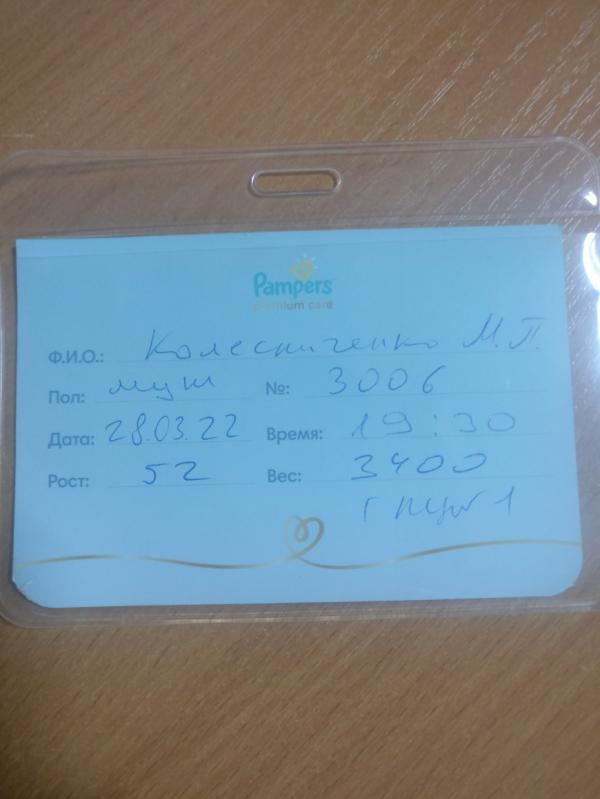 Pampers
premium care
Ф.И.О.: Колесниченко М.П.
Пол: муж №: 3006
Дата: 28.03.22 Время: 19:30
Рост: 52 Вес: 3400
г 1